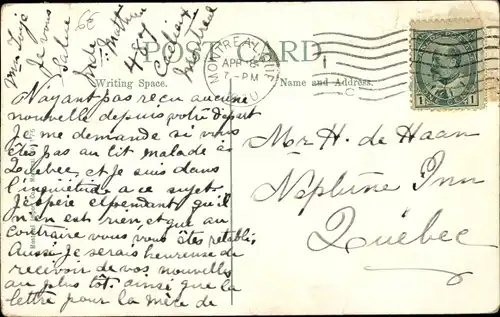 POST CARD
Writing Space.
Name and Address.
MONTREAL, QUE.
APR 8
7-PM
1 1
N'ayant pas reçu aucune
nouvelle depuis votre départ
Je me demande si vous
êtes pas au lit malade à
Québec et je suis dans
l'inquiétude a ce sujet
J'espère cependant qu'il
n'en est rien et que au
contraire vous vous êtes rétabli
Aussi Je serais heureuse de
recevoir de vos nouvelles
au plus tôt. ainsi que la
lettre pour la mère de
Je vous
Salue
487
Montréal
Mr H. de Haan
Neptune Inn
Québec